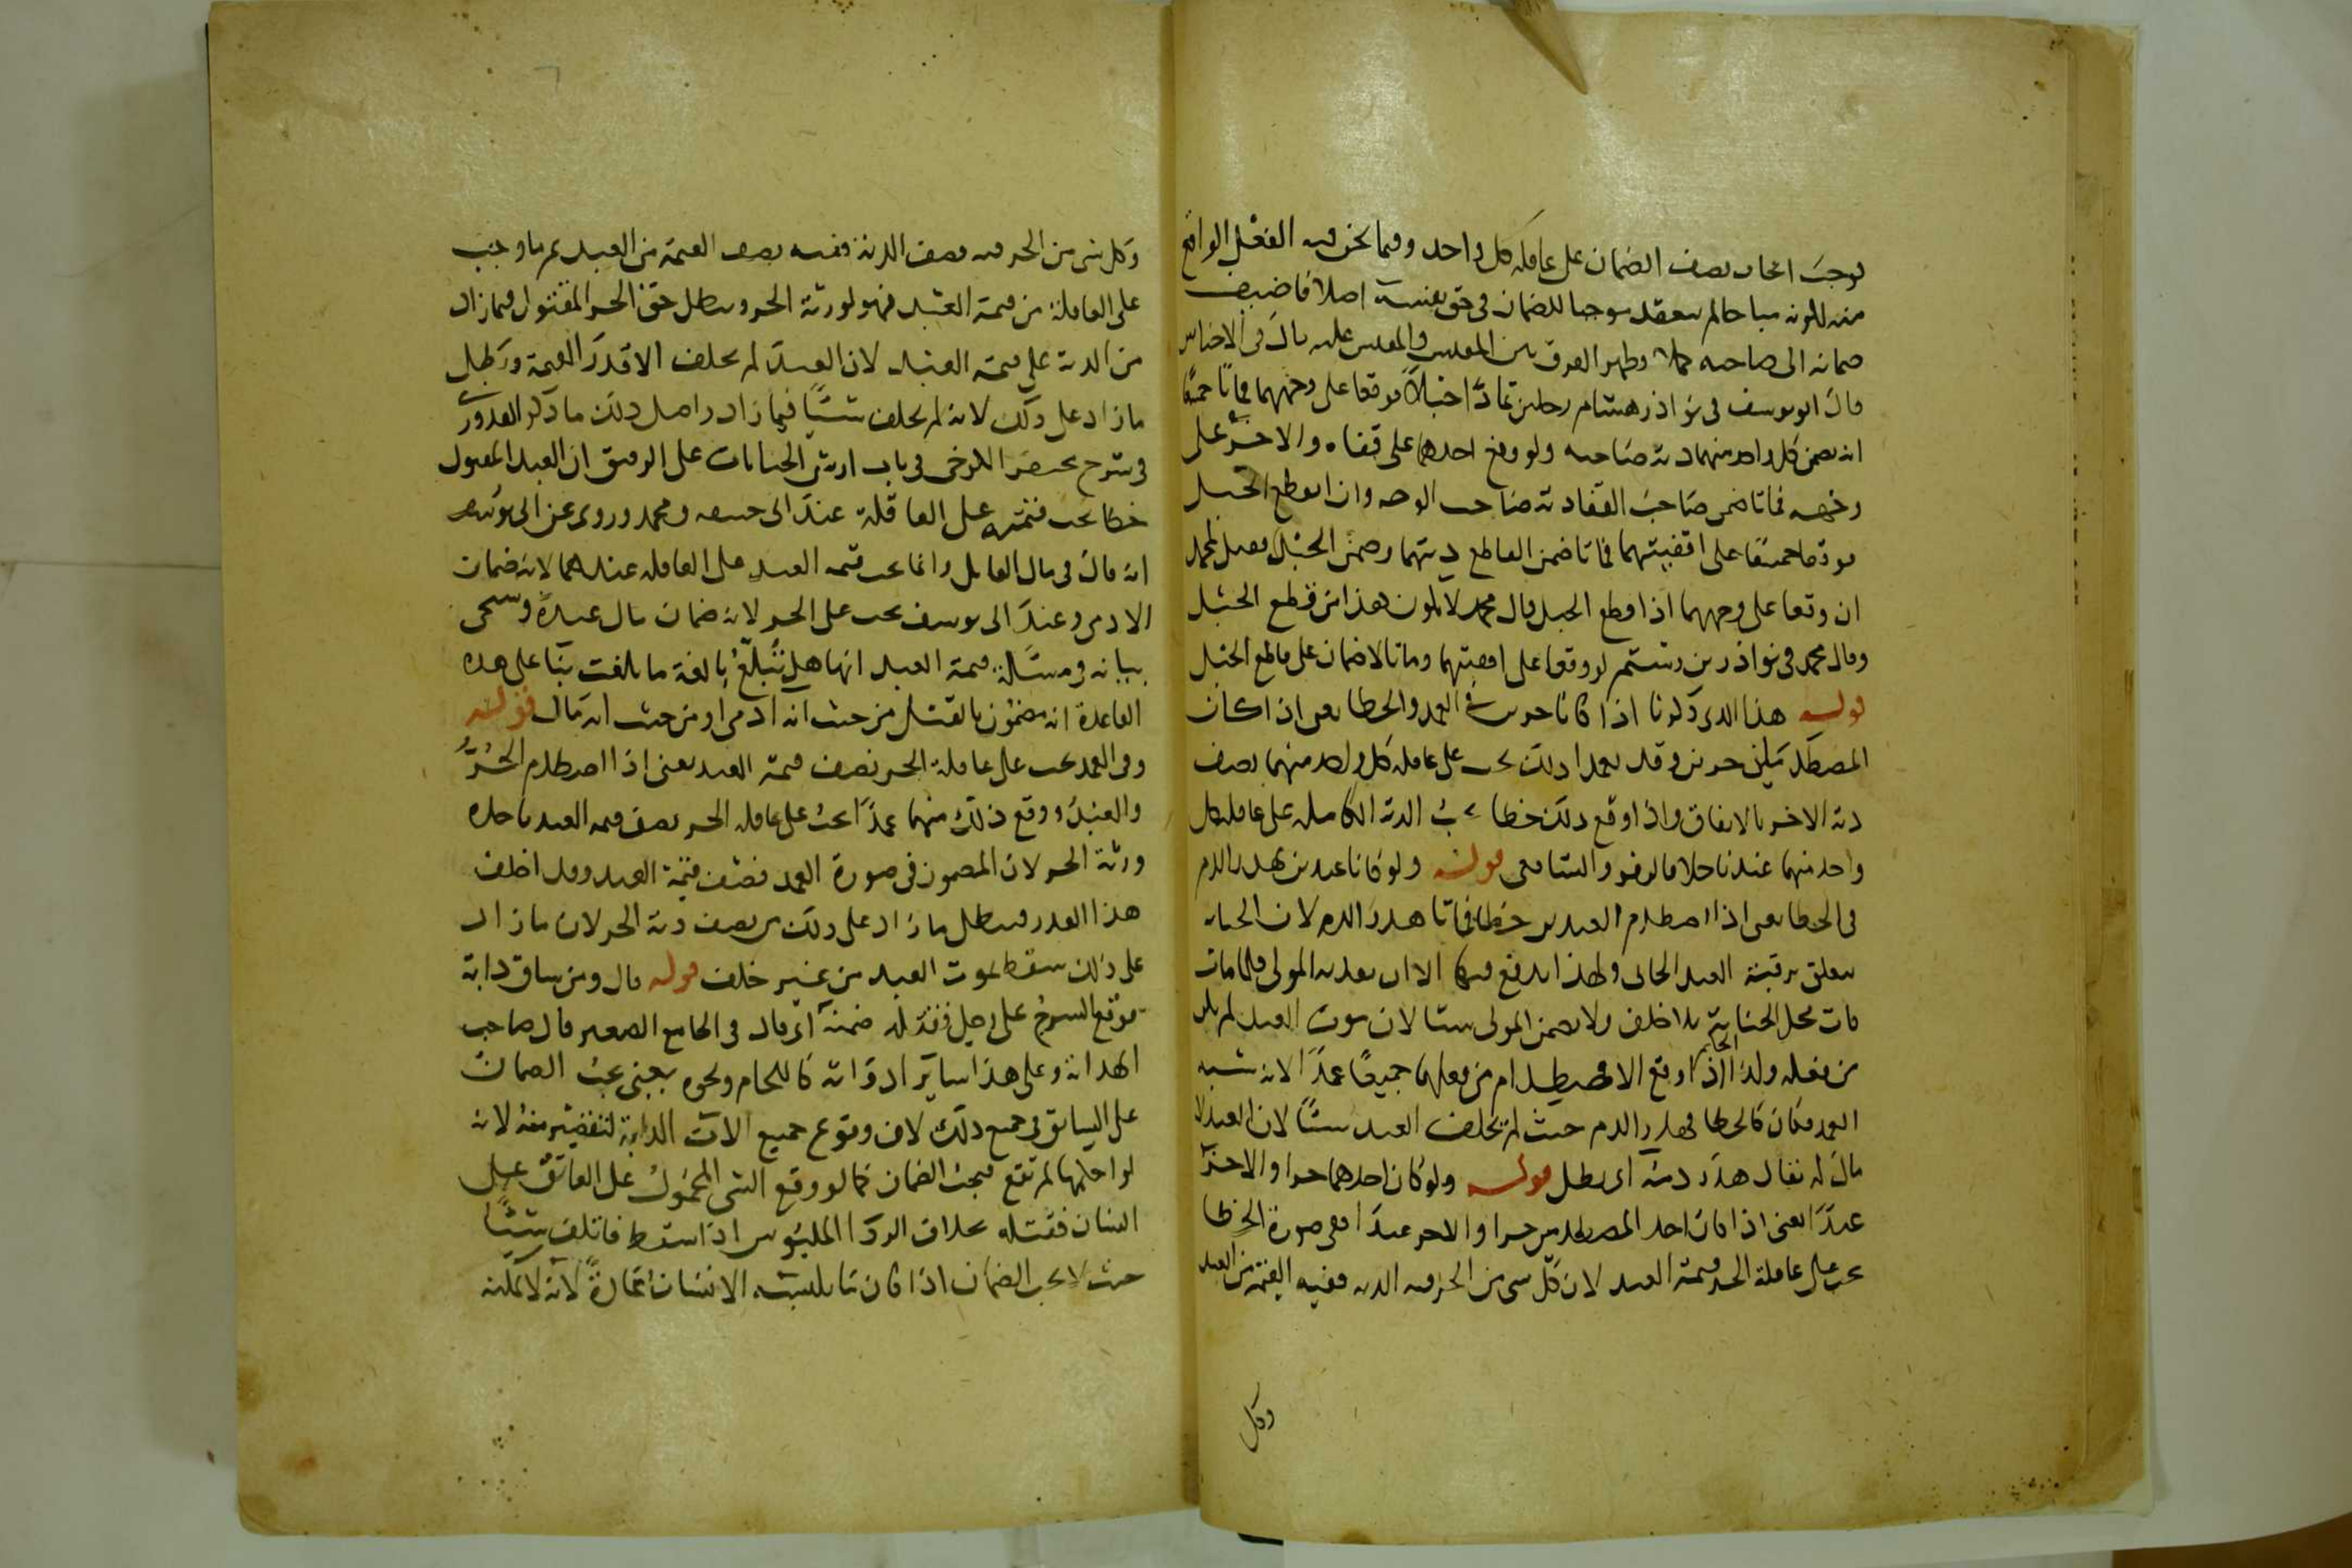 لوجب ايجاب نصف الضمان على عاقلة كل واحد وفيما نحن فيه الفعل الواقع
منه لكونه مباحا لم ينعقد موجبا للضمان في حق نفسه اصلا فاضيف
ضمانه الى صاحبه كملا وظهر الفرق بين المقيس والمقيس عليه قال في الاجناس
قال ابو يوسف في نوادر هشام رجلين تمادا حبلا فوقعا على وجههما فماتا جميعا
انه يضمن كل واحد منهما دية صاحبه ولو وقع احدهما على قفاه والاخر على
وجهه فماتا ضمن صاحب القفا دية صاحب الوجه وان انقطع الحبل
فوقعا جميعا على اقفيتهما فماتا ضمن القاطع ديتهما وضمن الحبل فقيل لمحمد
ان وقعا على وجههما اذا قطع الحبل قال محمد لا يكون هذا من قطع الحبل
وقال محمد في نوادر بن رستم لو وقعا على اقفيتهما وماتا لا ضمان على قاطع الحبل
قوله هذا الذي ذكرنا اذا كانا حرين في العمد والخطا يعني اذا كان
المصطدمين حرين وقد تعمدا ذلك يجب على عاقلة كل واحد منهما نصف
دية الاخر بالاتفاق واذا وقع ذلك خطا يجب الدية الكاملة على عاقلة كل
واحد منهما عندنا خلافا لزفر والشافعي قوله ولو كانا عبدين يهدر الدم
في الخطا يعني اذا اصطدم العبدين خطا فماتا هدر الدم لان الجناية
تتعلق برقبة العبد الجاني ولهذا يدفع فيها الا ان يفديه المولى فلما مات
فات محل الجناية بلا خلف ولا يضمن المولى شيئا لان موت العبد لم يكن
من فعله وكذا الحكم اذا وقع الاصطدام من فعلهما جميعا عمدا لانه شبه
العمد فكان كالخطا فهدر الدم حيث لم يخلف العبد شيئا لان العبد لا
مال له يقال هدر دمه اي بطل قوله ولو كان احدهما حرا والاخر
عبدا يعني اذا كان احد المصطدمين حرا والاخر عبدا ففي صورة الخطا
يجب على عاقلة الحر قيمة العبد لان كل شي من الحر فيه الدية ففيه القيمة من العبد
وكل
وكل شي من الحر فيه نصف الدية ففيه نصف القيمة من العبد ثم ما وجب
على العاقلة من قيمة العبد فهو لورثة الحر ويبطل حق الحر المقتول فيما زاد
من الدية على قيمة العبد لان العبد لم يخلف الا قدر القيمة وبطل
ما زاد على ذلك لانه لم يخلف شيئا فيما زاد واصل ذلك ما ذكر القدوري
في شرح مختصر الكرخي في باب ارش الجنايات على الرقيق ان العبد المقتول
خطا يجب قيمته على العاقلة عند ابي حنيفة ومحمد وروي عن ابي يوسف
انه قال في مال القاتل وانما يجب قيمة العبد على العاقلة عندهما لانه ضمان
الادمي وعند ابي يوسف يجب على الحر لانه ضمان مال عبده وسيجي
بيانه في مسالة قيمة العبد انها هل تبلغ بالغة ما بلغت بنا على هذه
القاعدة انه مضمون بالقتل من حيث انه ادمي او من حيث انه مال قوله
وفي العمد يجب على عاقلة الحر نصف قيمة العبد يعني اذا اصطدم الحر
والعبد ووقع ذلك منهما عمدا يجب على عاقلة الحر نصف قيمة العبد ياخذه
ورثة الحر لان المضمون في صورة العمد نصف قيمة العبد وقد اخلف
هذا القدر فيبطل ما زاد على ذلك من نصف دية الحر لان ما زاد
على ذلك سقط بموت العبد من غير خلف قوله قال ومن ساق دابة
فوقع السرج على رجل فقتله ضمنه اي قال في الجامع الصغير قال صاحب
الهداية وعلى هذا ساير ادواته كاللجام ونحوه يعني يجب الضمان
على السائق في جميع ذلك لان وقوع جميع الات الدابة لتقصير منه لانه
لو احكمها لم تقع فيجب الضمان كما لو وقع الشي المحمول على العاتق على
انسان فقتله بخلاف الردا الملبوس اذا سقط فاتلف شيئا
حيث لا يجب الضمان اذا كان مما يلبسه الانسان عادة لانه لا يمكنه